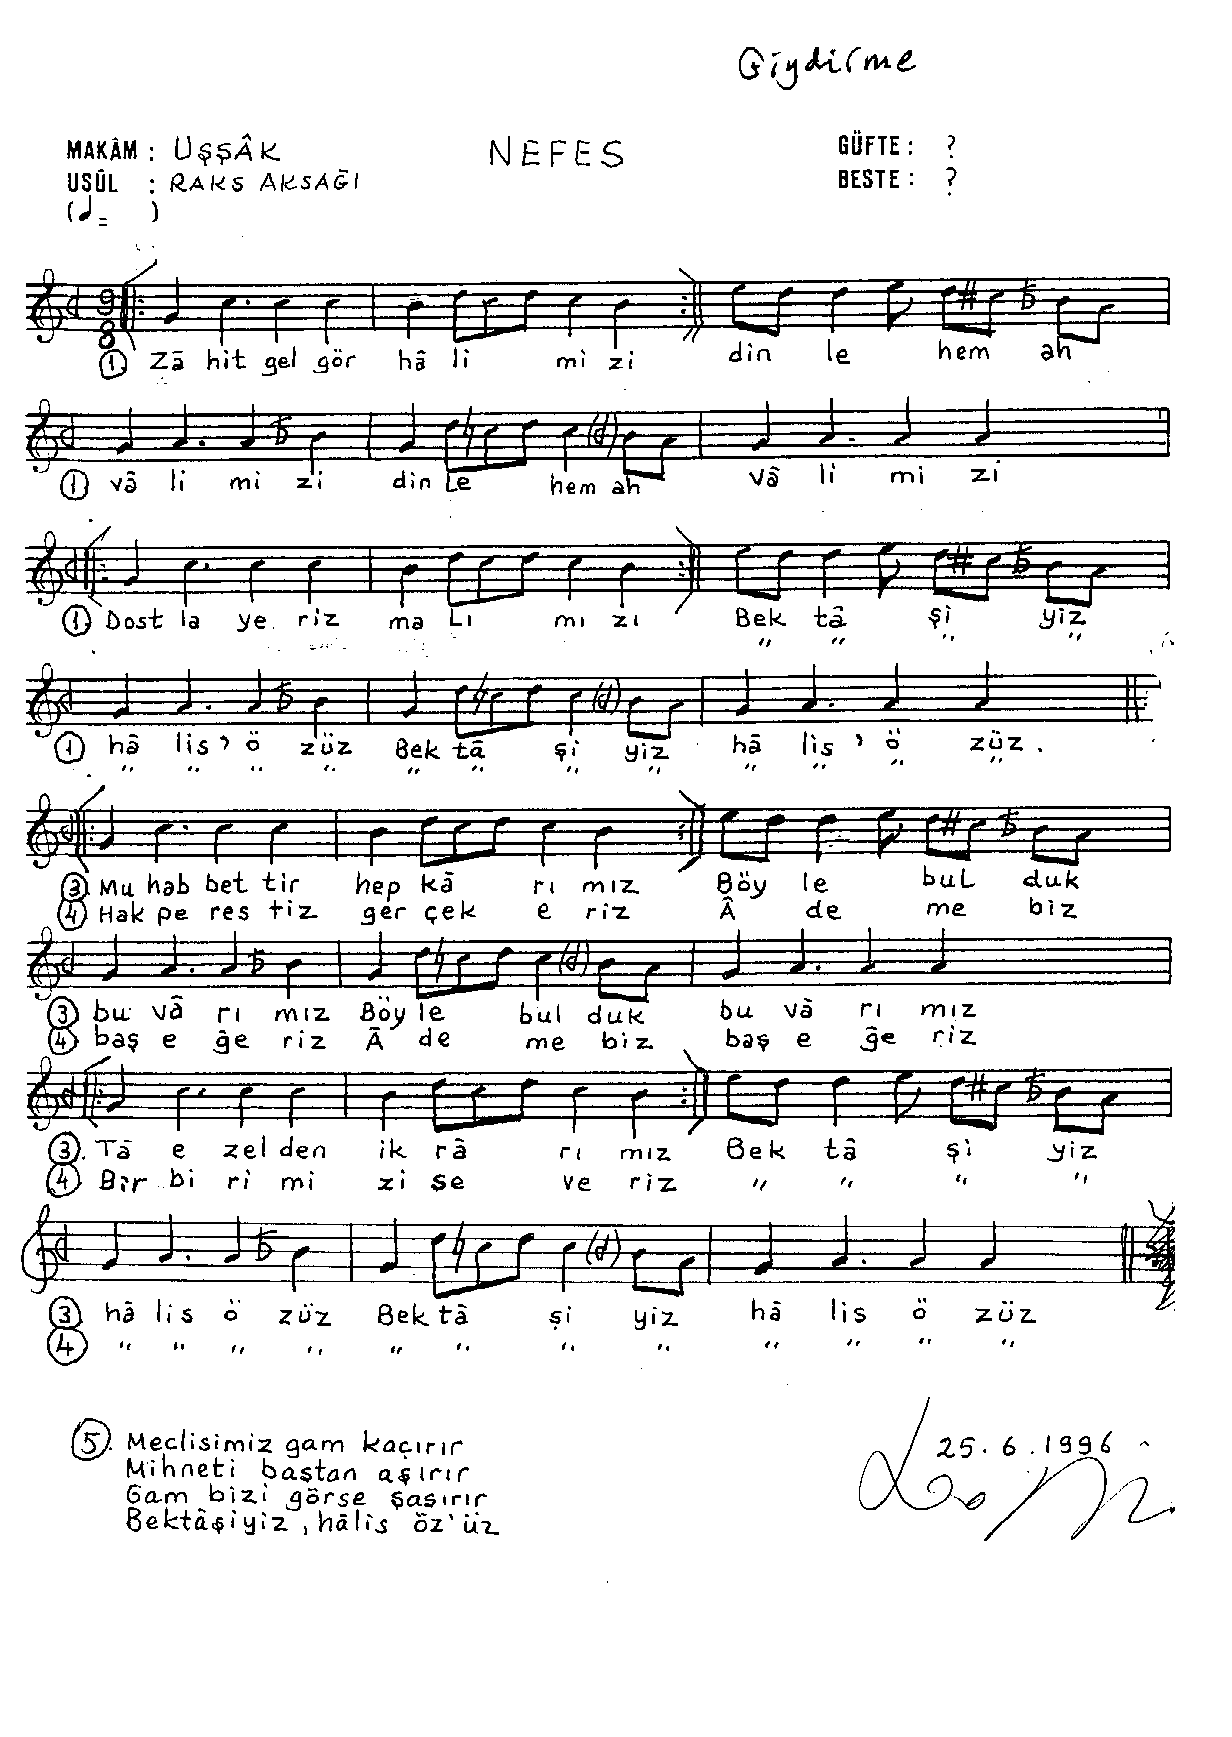 Giydirme
MAKÂM : UŞŞÂK
NEFES
GÜFTE : ?
USÛL : RAKS AKSAĞI
BESTE : ?
( = )
9
8
① Zâ hit gel gör hâ li mi zi din le hem ah
① vâ li mi zi din le hem ah vâ li mi zi
① Dost la ye riz ma lı mı zı Bek tâ şi yiz
" " " "
① hâ lis ' ö züz Bek tâ şi yiz hâ lis ' ö züz .
" " " " " " " " " " " "
③ Mu hab bet tir hep kâ rı mız Böy le bul duk
④ Hak pe res tiz ger çek e riz Â de me biz
③ bu vâ rı mız Böy le bul duk bu vâ rı mız
④ baş e ğe riz Â de me biz baş e ğe riz
③. Tâ e zel den ik râ rı mız Bek tâ şi yiz
④ Bir bi ri mi zi se ve riz " " " "
③ hâ lis ö züz Bek tâ şi yiz hâ lis ö züz
④ " " " " " " " " " " " "
⑤. Meclisimiz gam kaçırır
Mihneti baştan aşırır
Gam bizi görse şaşırır
Bektâşiyiz , hâlis öz' üz
25 . 6 . 1996